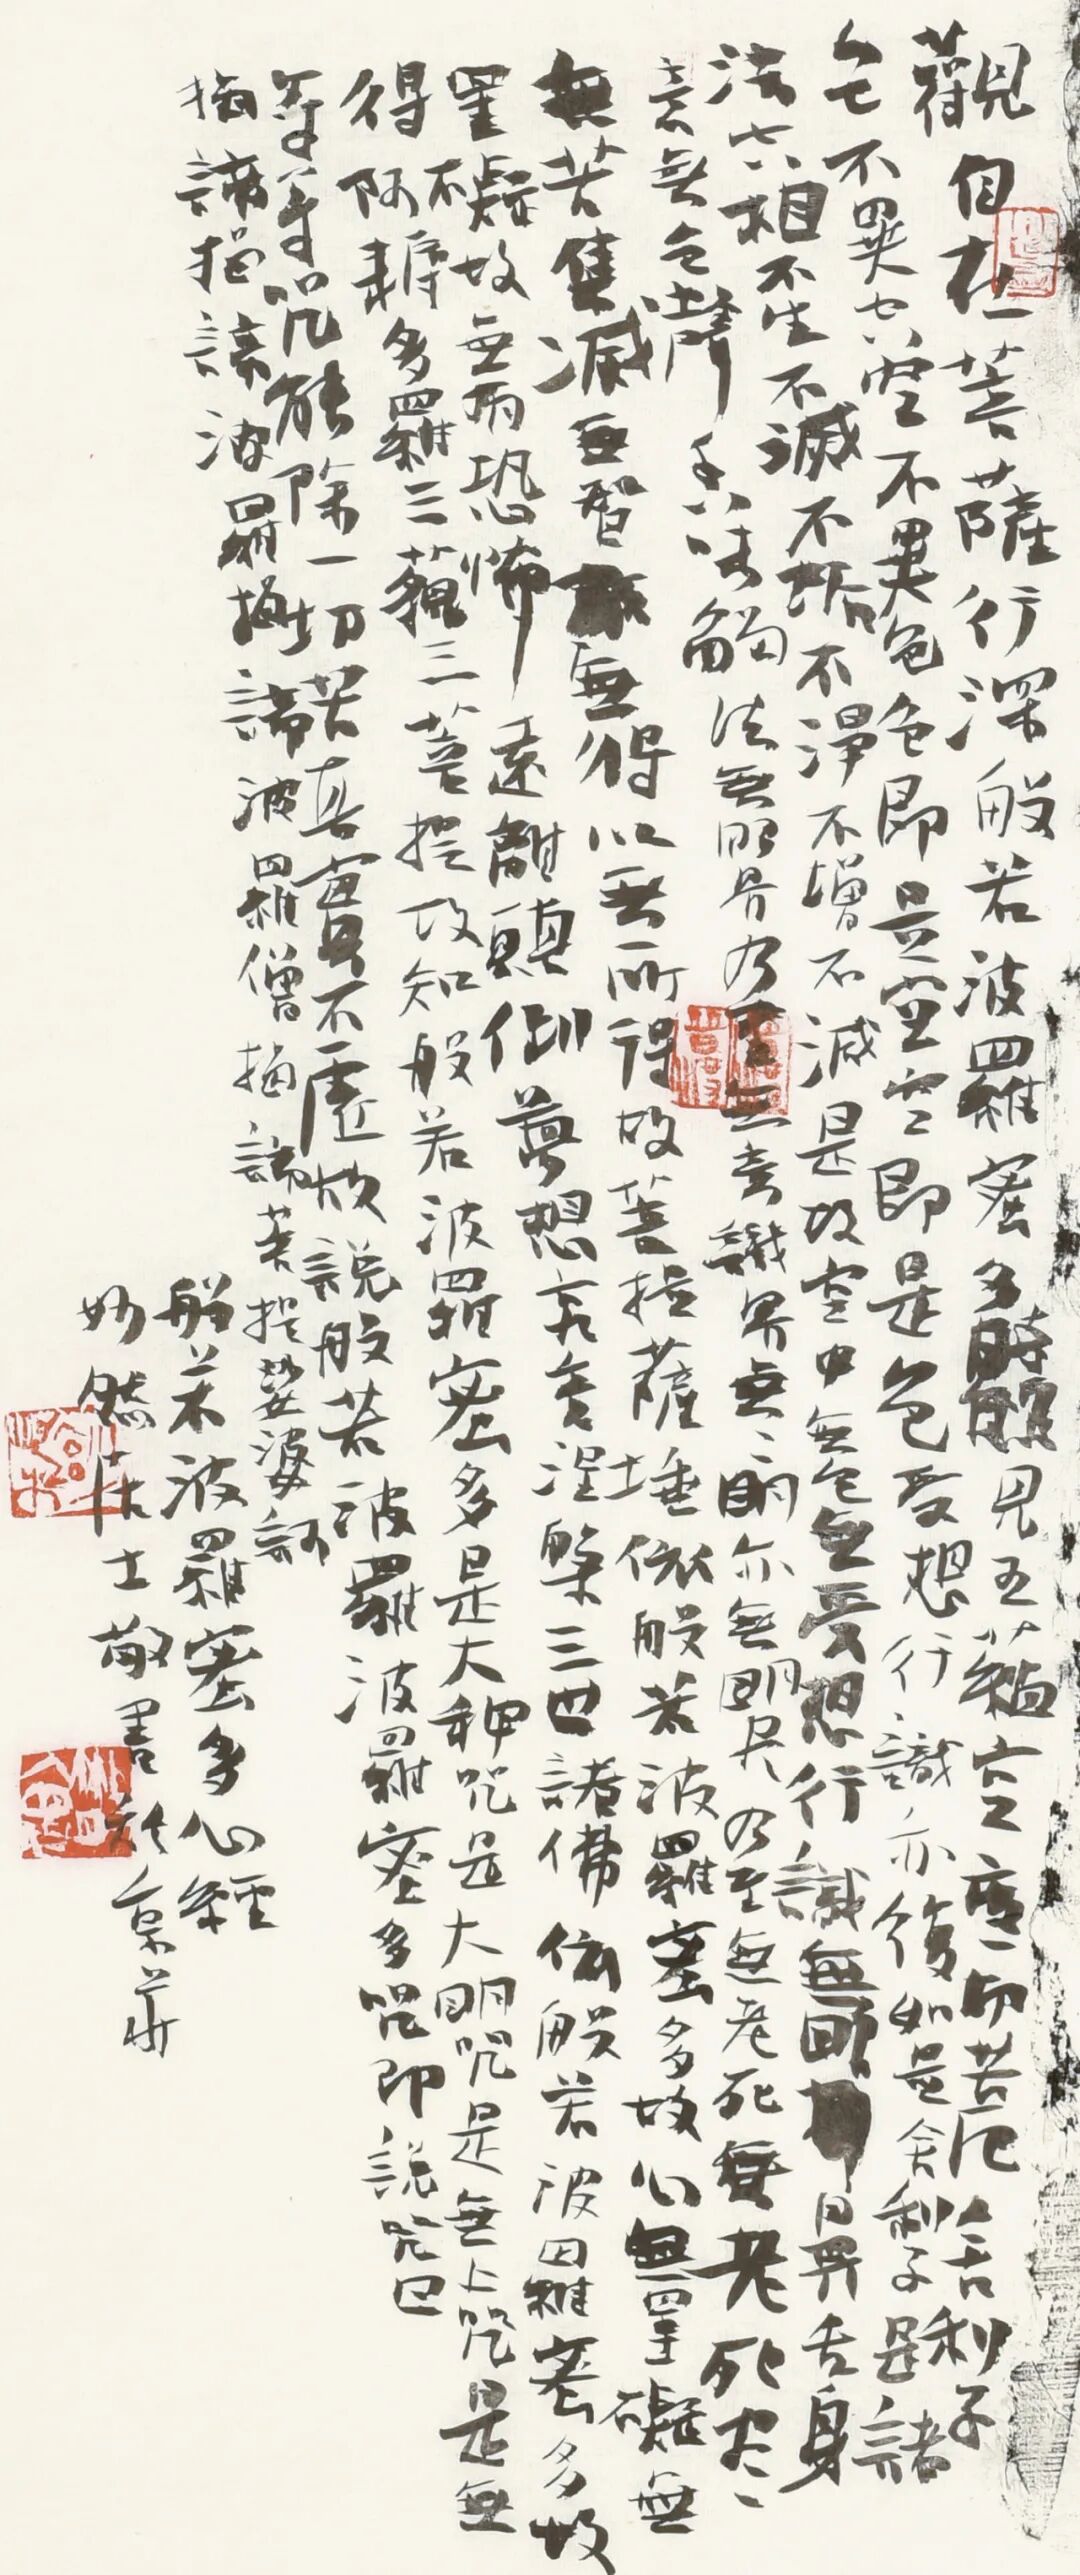 觀自在菩薩行深般若波羅蜜多時照見五蘊空度一切苦厄舍利子
色不異空空不異色色即是空空即是色受想行識亦復如是舍利子是諸
法空相不生不滅不垢不淨不增不減是故空中無色無受想行識無眼耳鼻舌身
意無色聲香味觸法無眼界乃至無意識界無無明亦無無明盡乃至無老死無老死盡
無苦集滅無智亦無得以無所得故菩提薩埵依般若波羅蜜多故心無罣礙無
罣礙故無有恐怖遠離顛倒夢想究竟涅槃三世諸佛依般若波羅蜜多故
得阿耨多羅三藐三菩提故知般若波羅蜜多是大神咒是大明咒是無上咒是無
等等咒能除一切苦真實不虛故說般若波羅蜜多咒即說咒曰
揭諦揭諦波羅揭諦波羅僧揭諦菩提娑婆訶
般若波羅蜜多心經
妙然居士敬書於京華